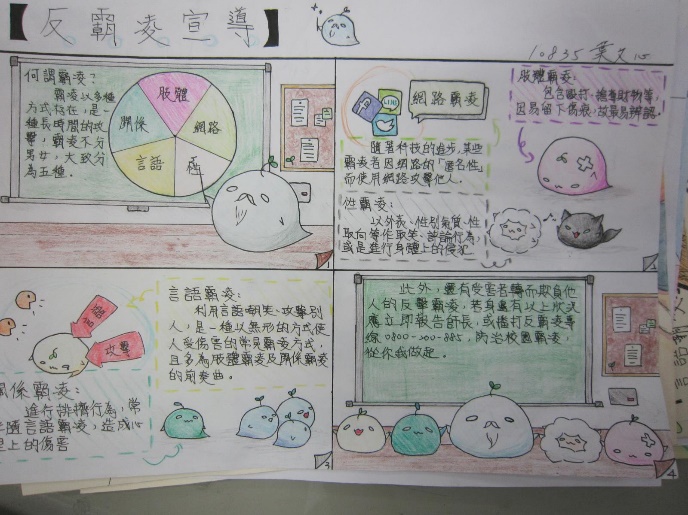 【反霸凌宣導】
10835 葉久心
何謂霸凌？
霸凌以多種
方式存在，是一
種長時間的攻
擊，霸凌不分
男女，大致分
為五種。
肢體
網路
性
言語
關係
1
LINE
網路霸凌
隨著科技的進步，某些
霸凌者因網路的「匿名性」
而使用網路攻擊他人。
肢體霸凌：
包含毆打、搶奪財物等，
因易留下傷痕，故最易辨認。
性霸凌：
以外表、性別氣質、性
取向等作取笑、評論行為，
或是進行身體上的侵犯
2
言語
攻擊
言語霸凌：
利用言語嘲笑、攻擊別
人，是一種以無形的方式使
人受傷害的常見霸凌方式，
且多為肢體霸凌及關係霸凌
的前奏曲。
關係霸凌：
進行排擠行為，常
伴隨言語霸凌，造成心
理上的傷害
3
此外，還有受害者轉而欺負他
人的反擊霸凌，若身邊有以上狀況
應立即報告師長，或撥打反霸凌專
線0800-200-885，防治校園霸凌，
從你我做起。
4